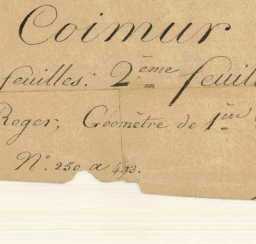 Coimur
feuilles: 2ème feuill
Roger, Géomètre de 1ère
N° 250 a 493.